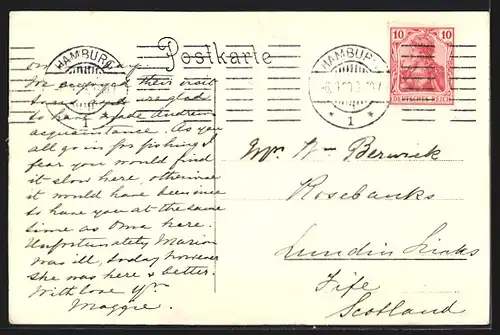 Postkarte
HAMBURG
1
HAMBURG
* 1 *
10 10
DEUTSCHES REICH
We enjoyed their visit
to have made Andrew
acquaintance. As you
all go in for fishing I
fear you would find
it slow here, otherwise
it would have been nice
to have you at the same
time as Oma here.
Unfortunately Marion
was ill, today however
she was here & better.
With love yrs
Maggie.
Mrs. Wm Berwick
Rosebanks
Lundin Links
Fife
Scotland